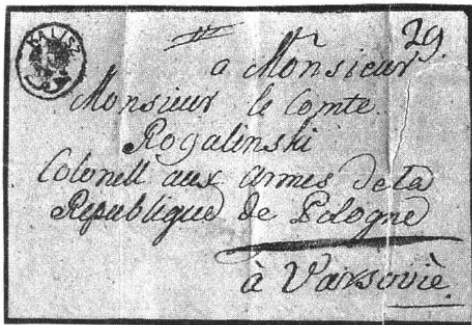 KALISZ
29
a Monsieur
Monsieur le Comte
Rogalinski
Colonell aux Armes de la
Republique de Pologne
à Varsovie